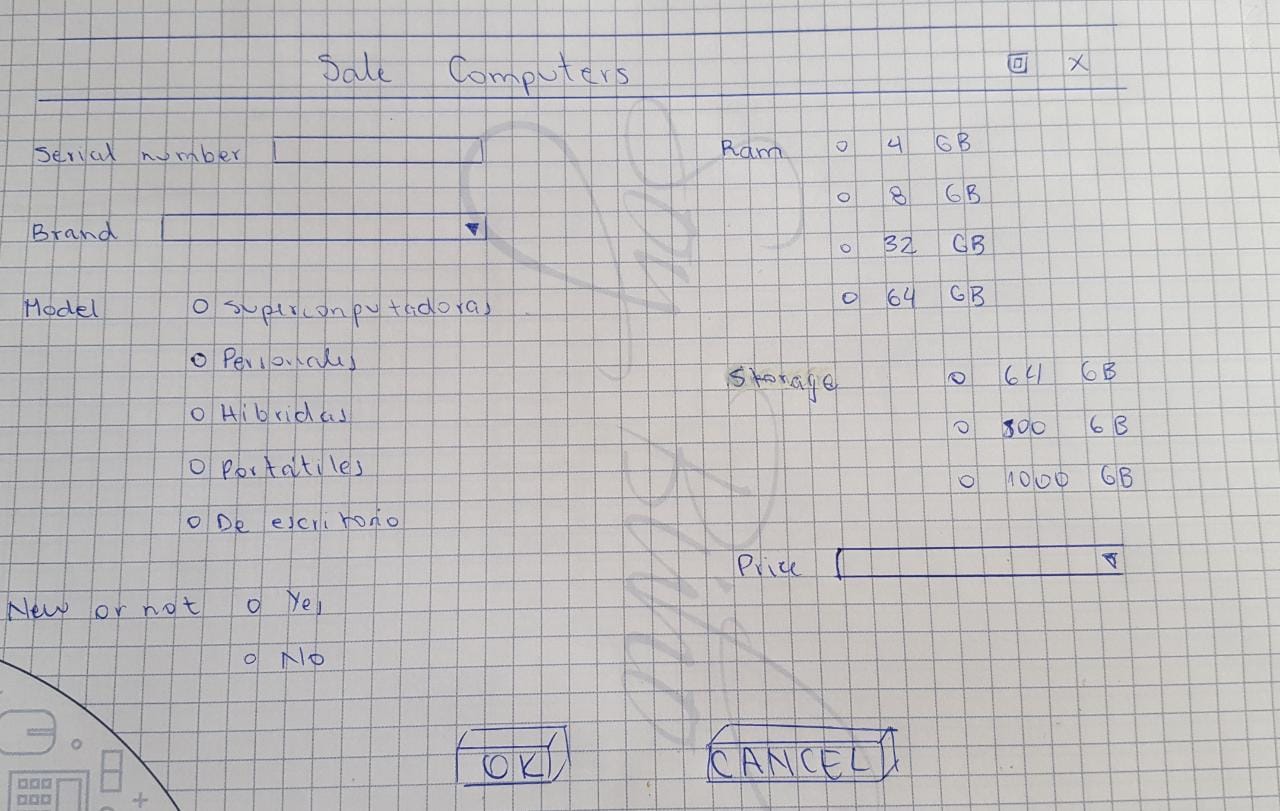 Sale Computers
Serial number
Brand
Model
Superconputadoras
Personales
Hibridas
Portátiles
De escritorio
New or not
Yes
No
Ram
4 GB
8 GB
32 GB
64 GB
Storage
64 GB
1000 GB
Price
OK
CANCEL